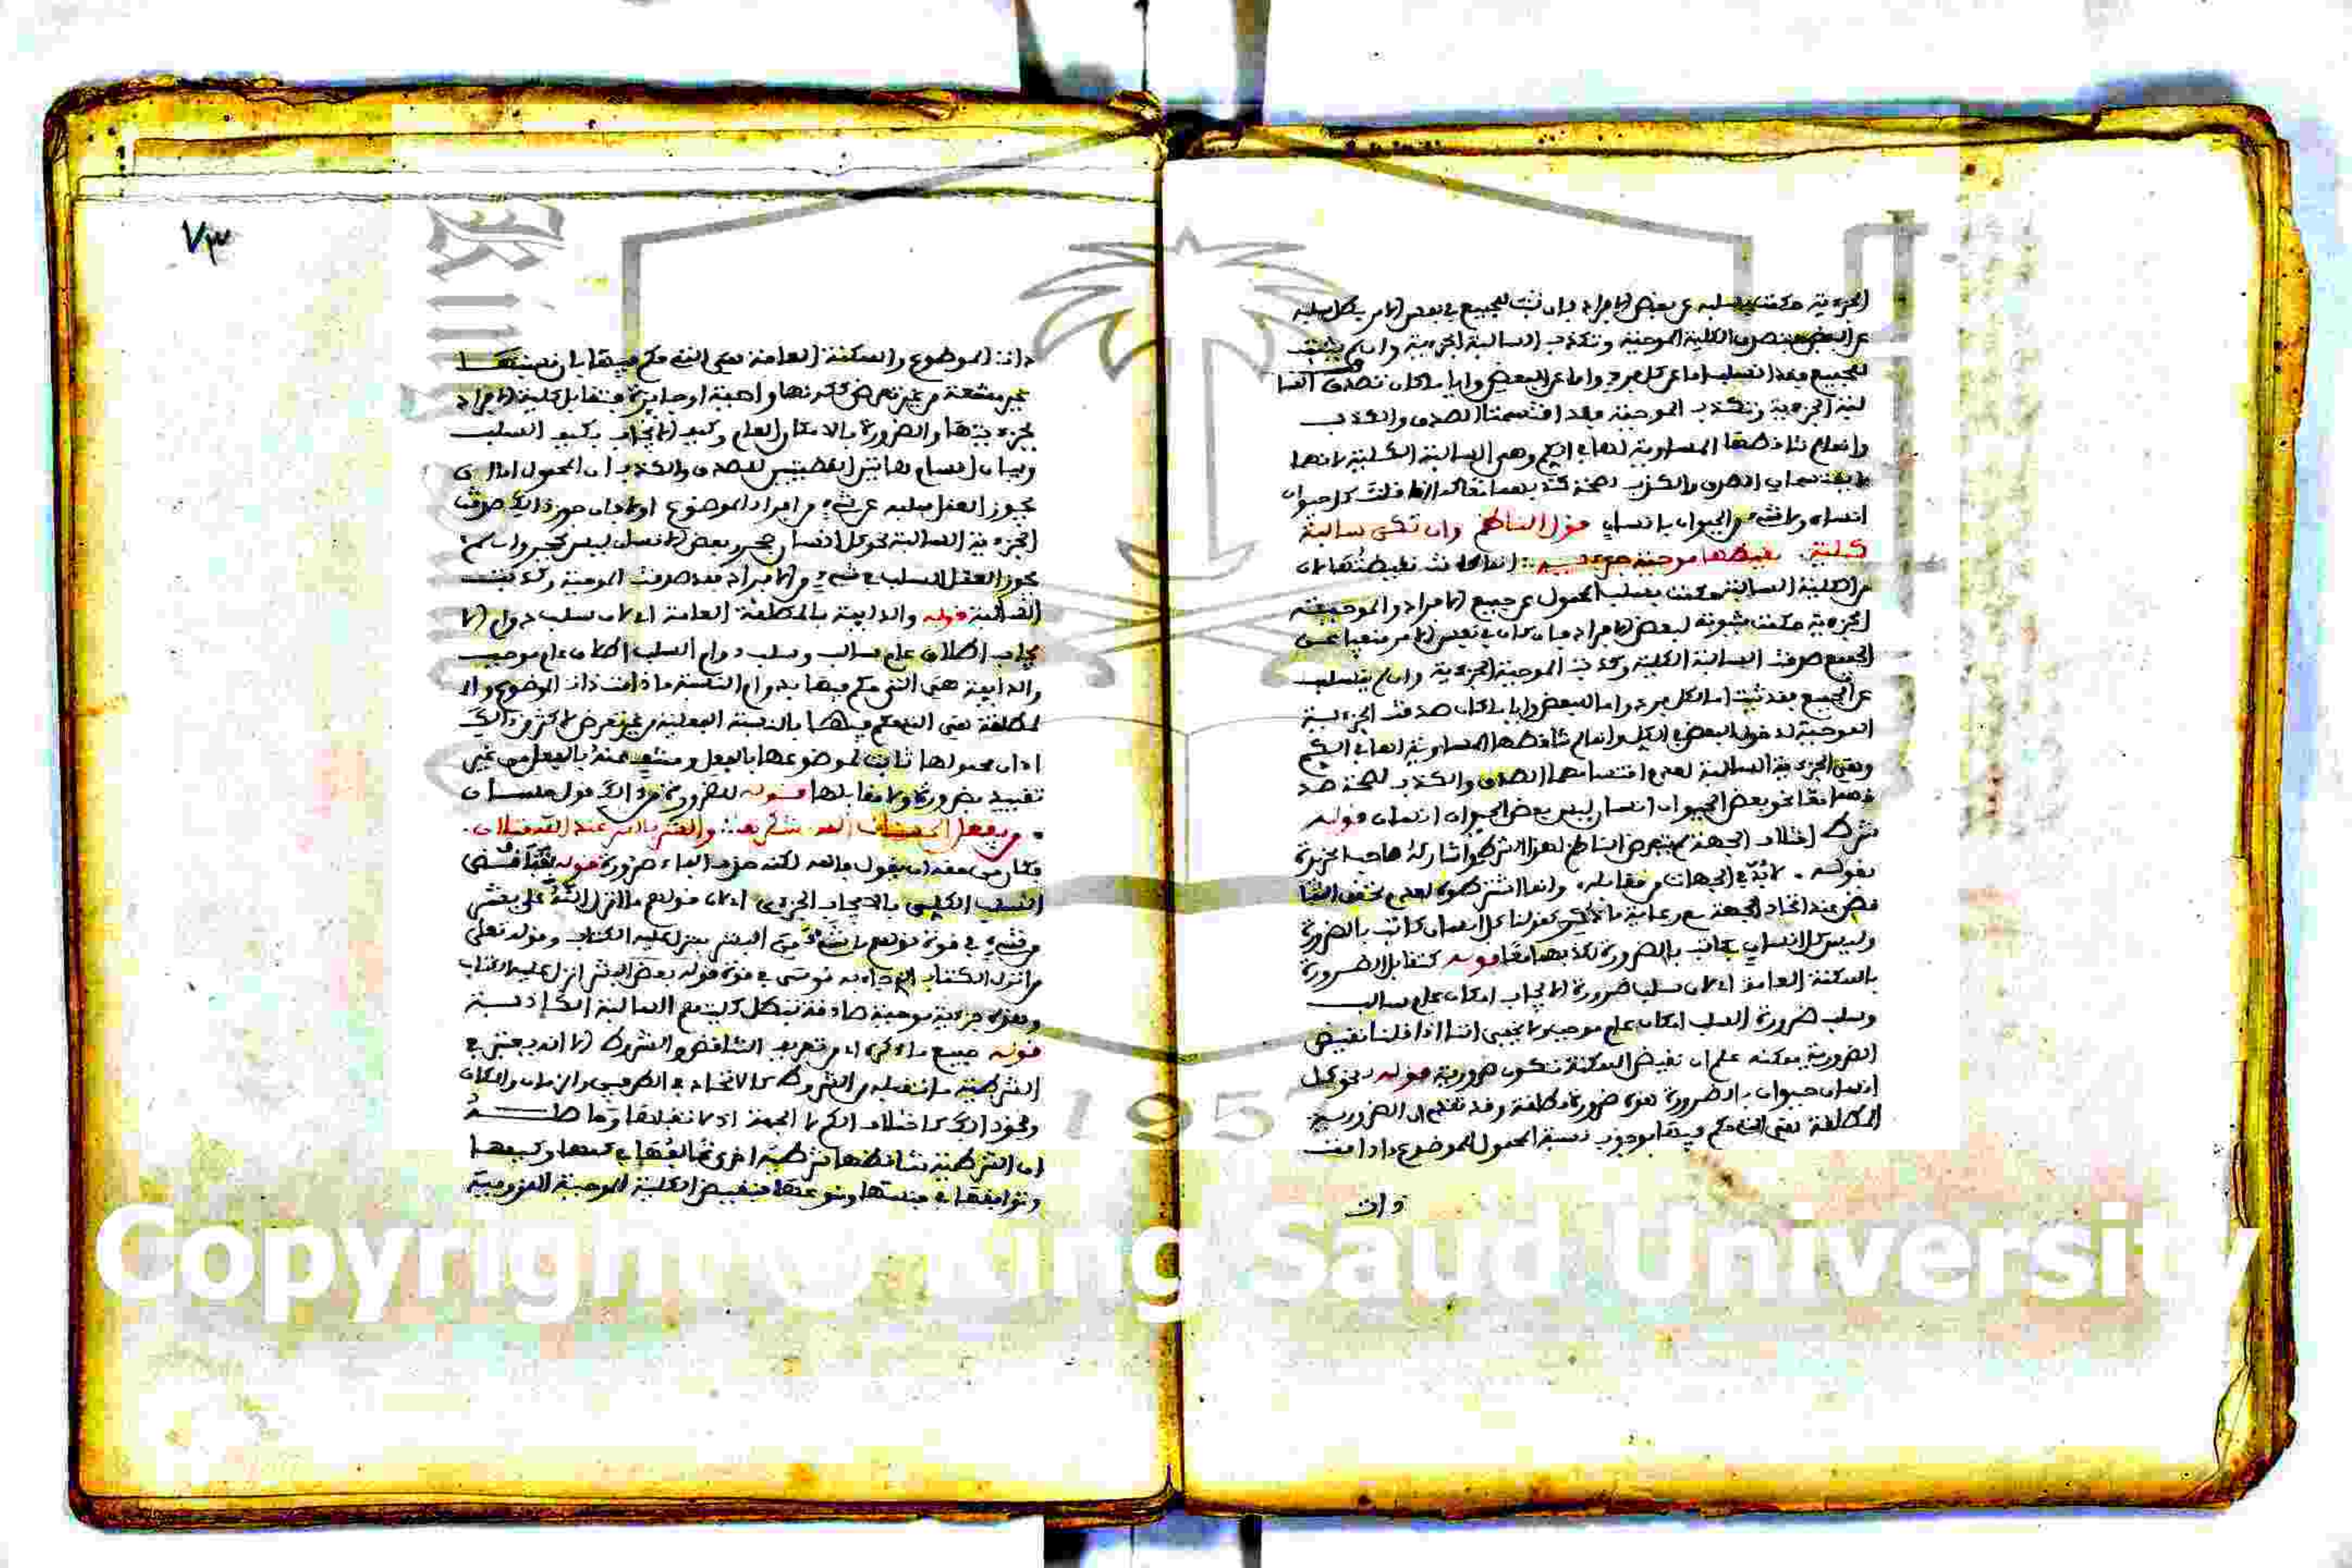 الجزءية حكمت بسلبه عن بعض الافراد فان ثبت للجميع في بعض الامر بكل سلبه
عن البعض فتصدق الكلية الموجبة وتكذب السالبة الجزءية وان لم يثبت
للجميع فقد انسلب اما عن كل فرد واما عن البعض وايا ما كان تصدق السا
لبة الجزءية وتكذب الموجبة فقد اقتسمتا الصدق والكذب
وانما لم تناقضها المساوية لها في الكم وهي السالبة الكلية لانها
لا يقتسمان الصدق والكذب لصحة كذبهما معا كما اذا قلت كل حيوان
انسان ولا شيء من الحيوان بانسان قول الناظم وان تكن سالبة
كلية نقيضها موجبة جزءيه انما كانت نقيضتها لان
الكلية السالبة حكمت بسلب المحمول عن جميع الافراد والموجبة
الجزءية حكمت بثبوته لبعض الافراد فان كان في نفس الامر منفيا عن
الجميع صدقت السالبة الكلية وكذبت الموجبة الجزءية وان لم ينسلب
عن الجميع فقد ثبت اما لكل فرد واما للبعض وايا ما كان صدقت الجزءية
الموجبة لدخول البعض في الكل وانما لم تناقضها المساوية لها في الكم
وهي الجزءية السالبة لعدم اقتسامهما الصدق والكذب لصحة صد
قهما معا نحو بعض الحيوان انسان ليس بعض الحيوان انسان قوله
شرط اختلاف الجهة لم يتعرض الناظم لهذا الشرط واشار له صاحب الجزيرة
بقوله . لا بد في الجهات من مقابله وانما اشترطوه لعدم تحقق التنا
قض عند اتحاد الجهة مع رعاية ما ذكر كقولنا كل انسان كاتب بالضرورة
وليس كل انسان بكاتب بالضرورة لكذبهما معا قوله كتقابل الضرورة
بالممكنة العامة اي لان سلب ضرورة الايجاب امكان عام سالب
وسلب ضرورة السلب امكان عام موجب ولا يخفى اننا اذا قلنا نقيض
الضرورية ممكنة علم ان نقيض الممكنة تكون ضرورية قوله نحو كل
انسان حيوان بالضرورة هذه ضرورة مطلقة وقد تقدم ان الضرورية
المطلقة هي التي حكم فيها بوجوب نسبة المحمول للموضوع ما دامت
ذات
٧٣
ذات الموضوع والممكنة العامة هي التي حكم فيها بان نسبتها
غير ممتنعة من غير تعرض لكونها واجبة او جايزة فتقابل كلية الافراد
بجزءيتها والضرورة بالامكان العام وكيف الايجاب بكيف السلب
وبيان اقتسام هاتين القضيتين للصدق والكذب ان المحمول اما ان
يجوز العقل سلبه عن شيء من افراد الموضوع او لا فان جوز ذلك صدقت
الجزءية السالبة نحو كل انسان حجر وبعض الانسان ليس بحجر وان لم
يجوز العقل السلب في شيء من الافراد فقد صدقت الموجبة وكذبت
السالبة قوله والدايمة بالمطلقة العامة اي لان سلب دوام الا
يجاب اطلاق عام سالب وسلب دوام السلب اطلاق عام موجب
والدايمة هي التي حكم فيها بدوام النسبة ما دامت ذات الموضوع والـ
ـمطلقة هي التي حكم فيها بالنسبة الفعلية من غير تعرض لاكثر من ذلك
اي ان محمولها ثابت لموضوعها بالفعل ومنتف عنه بالفعل من غير
تقييد بضرورة ولا مقابلها قوله للضرورة من ذلك قول حسان
من يفعل الحسنات الله يشكرها والشر بالشر عند الله مثلان
فكان من حقه ان يقول فالله لكنه حذف الفاء ضرورة قوله فتناقض
السلب الكلي بالايجاب الجزءي اي لان قولهم ما انزل الله على بشر
من شيء في قوة قولهم لا شيء من البشر ينزل عليه الكتاب وقوله تعالى
من انزل الكتاب الذي جاء به موسى في قوة قوله بعض البشر انزل عليه الكتاب
وهذه جزءية موجبة صادقة فبطل كليتهم السالبة الكاذبة
قوله جميع ما ذكر اي من تعريف التناقض والشروط الا انه يعتبر في
الشرطية ما تقبله من الشروط كالاتحاد في الطرفين والزمان والمكان
ونحو ذلك كاختلاف الكم لا الجهة اذ لا تقبلها وحاصله
ان الشرطية تناقضها شرطية اخرى تخالفها في كمها وكيفها
وتوافقها في جنسها ونوعها فنقيض الكلية الموجبة اللزومية